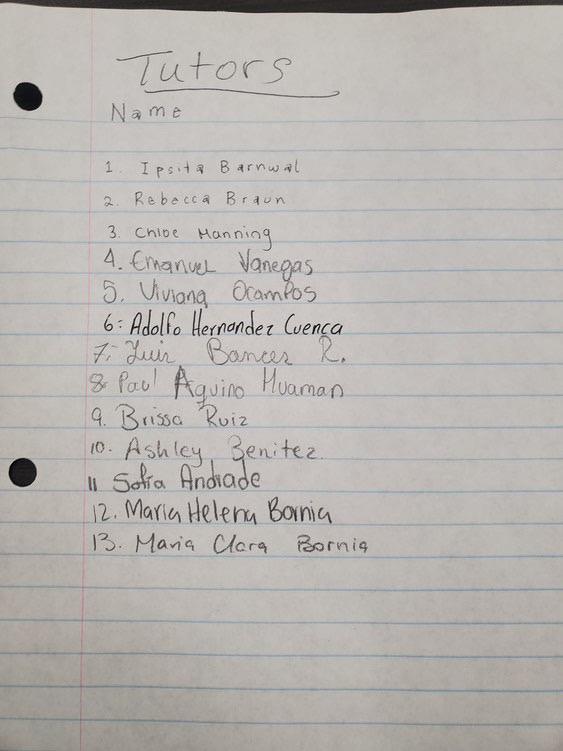 Tutors
Name
1. Ipsita Barnwal
2. Rebecca Braun
3. Chloe Manning
4. Emanuel Vanegas
5. Viviana Ocampos
6: Adolfo Hernandez Cuenca
7.- Luis Bances R.
8. Paul Aquino Huaman
9. Brissa Ruiz
10. Ashley Benitez.
11 Sofia Andrade
12. Maria Helena Bornia
13. Maria Clara Bornia